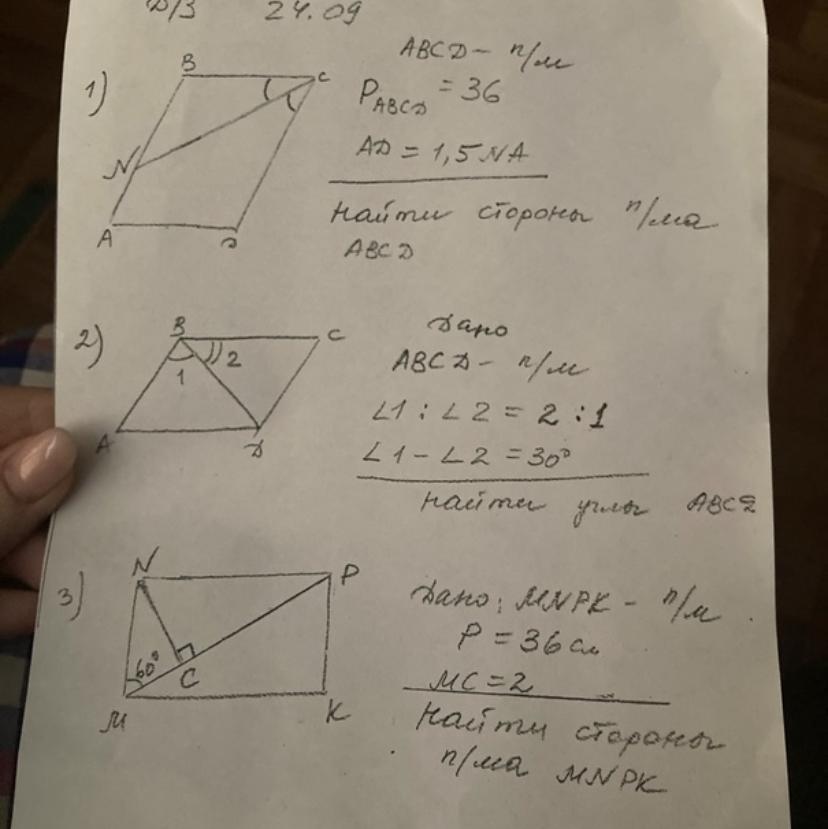 Д/З 24.09
1)
B
C
N
A
D
ABCD – п/м
P ABCD = 36
AD = 1,5 NA
Найти стороны п/ма
ABCD
2)
B
C
1
2
A
D
Дано
ABCD – п/м
∠1 : ∠2 = 2 : 1
∠1 – ∠2 = 30°
Найти углы ABCD
3)
N
P
60°
C
M
K
Дано: MNPK – п/м
P = 36 см
MC = 2
Найти стороны
п/ма MNPK